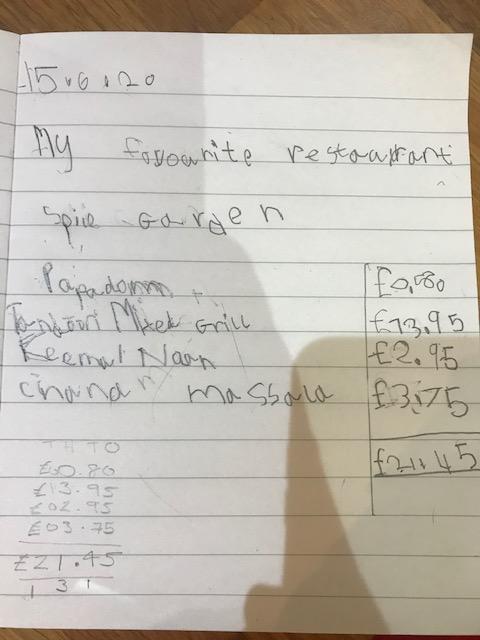 15.6.20
My favourite restaurant
Spiie Garden
Papadomm £0.80
Tandoori Mixed Grill £13.95
Keemal Naan £2.95
chanan massala £3.75
£21.45
T H T O
£0.80
£13.95
£02.95
£03.75
£21.45
1 3 1